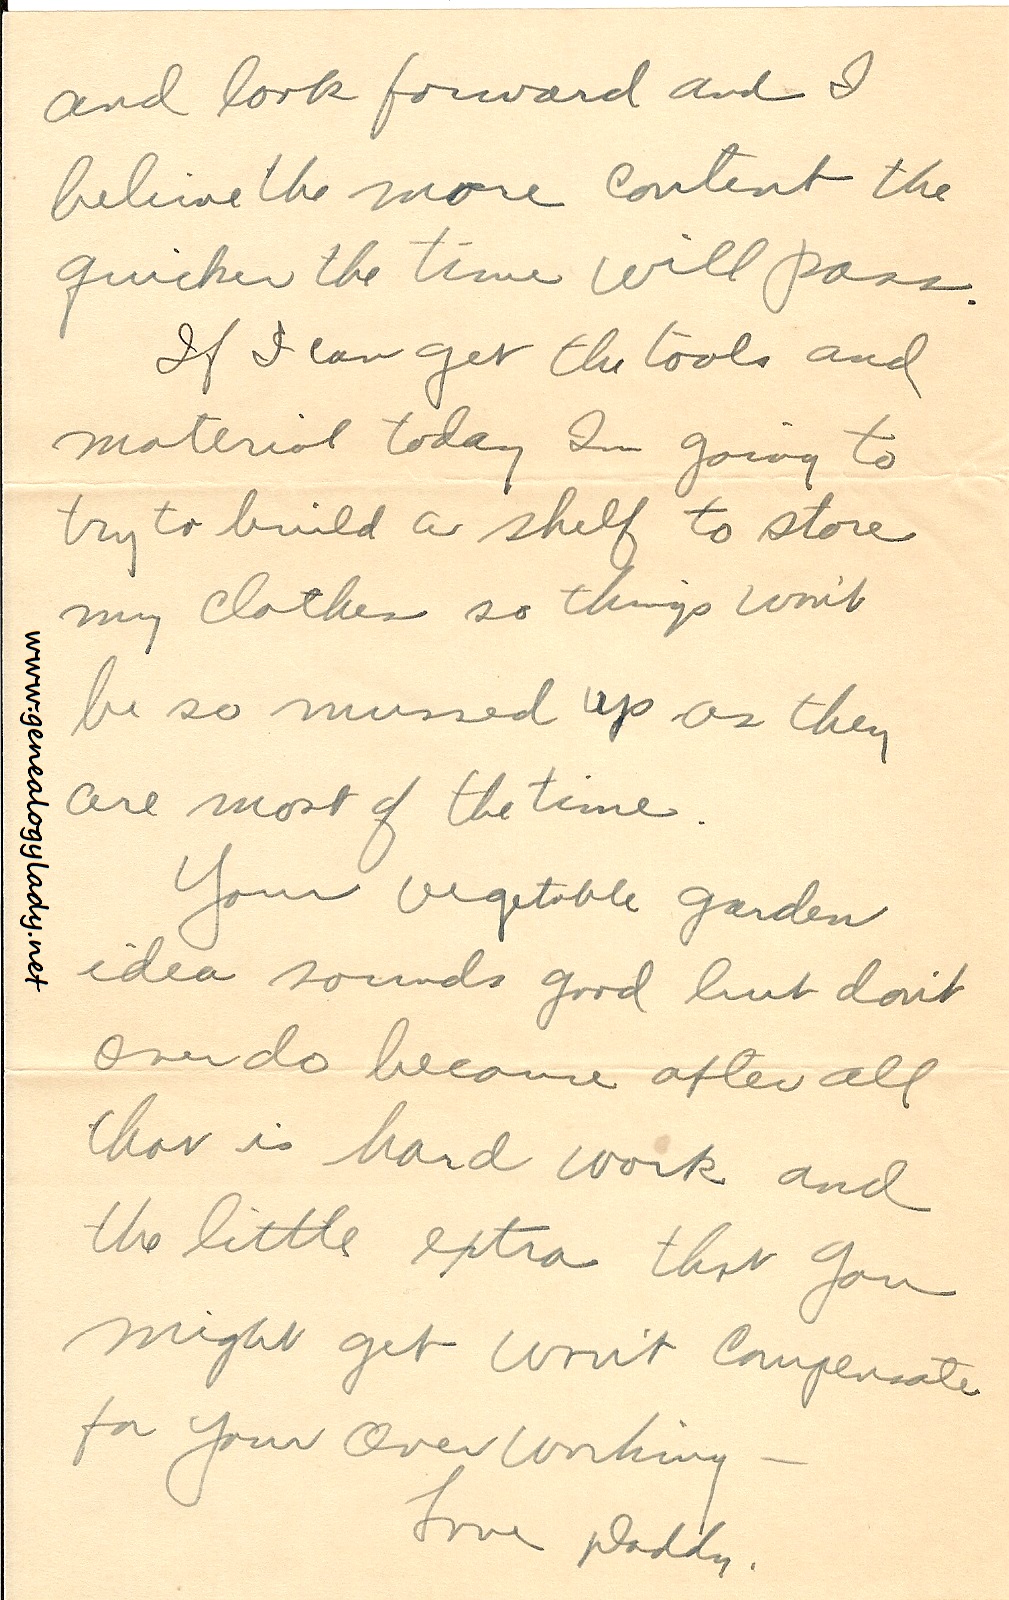 and look forward and I
believe the more content the
quicker the time will pass.
If I can get the tools and
material today Im going to
try to build a shelf to store
my clothes so things won't
be so mussed up as they
are most of the time.
Your vegetable garden
idea sounds good but don't
over do because after all
that is hard work and
the little extra that you
might get won't compensate
for your over working –
Love Daddy.
www.genealogylady.net